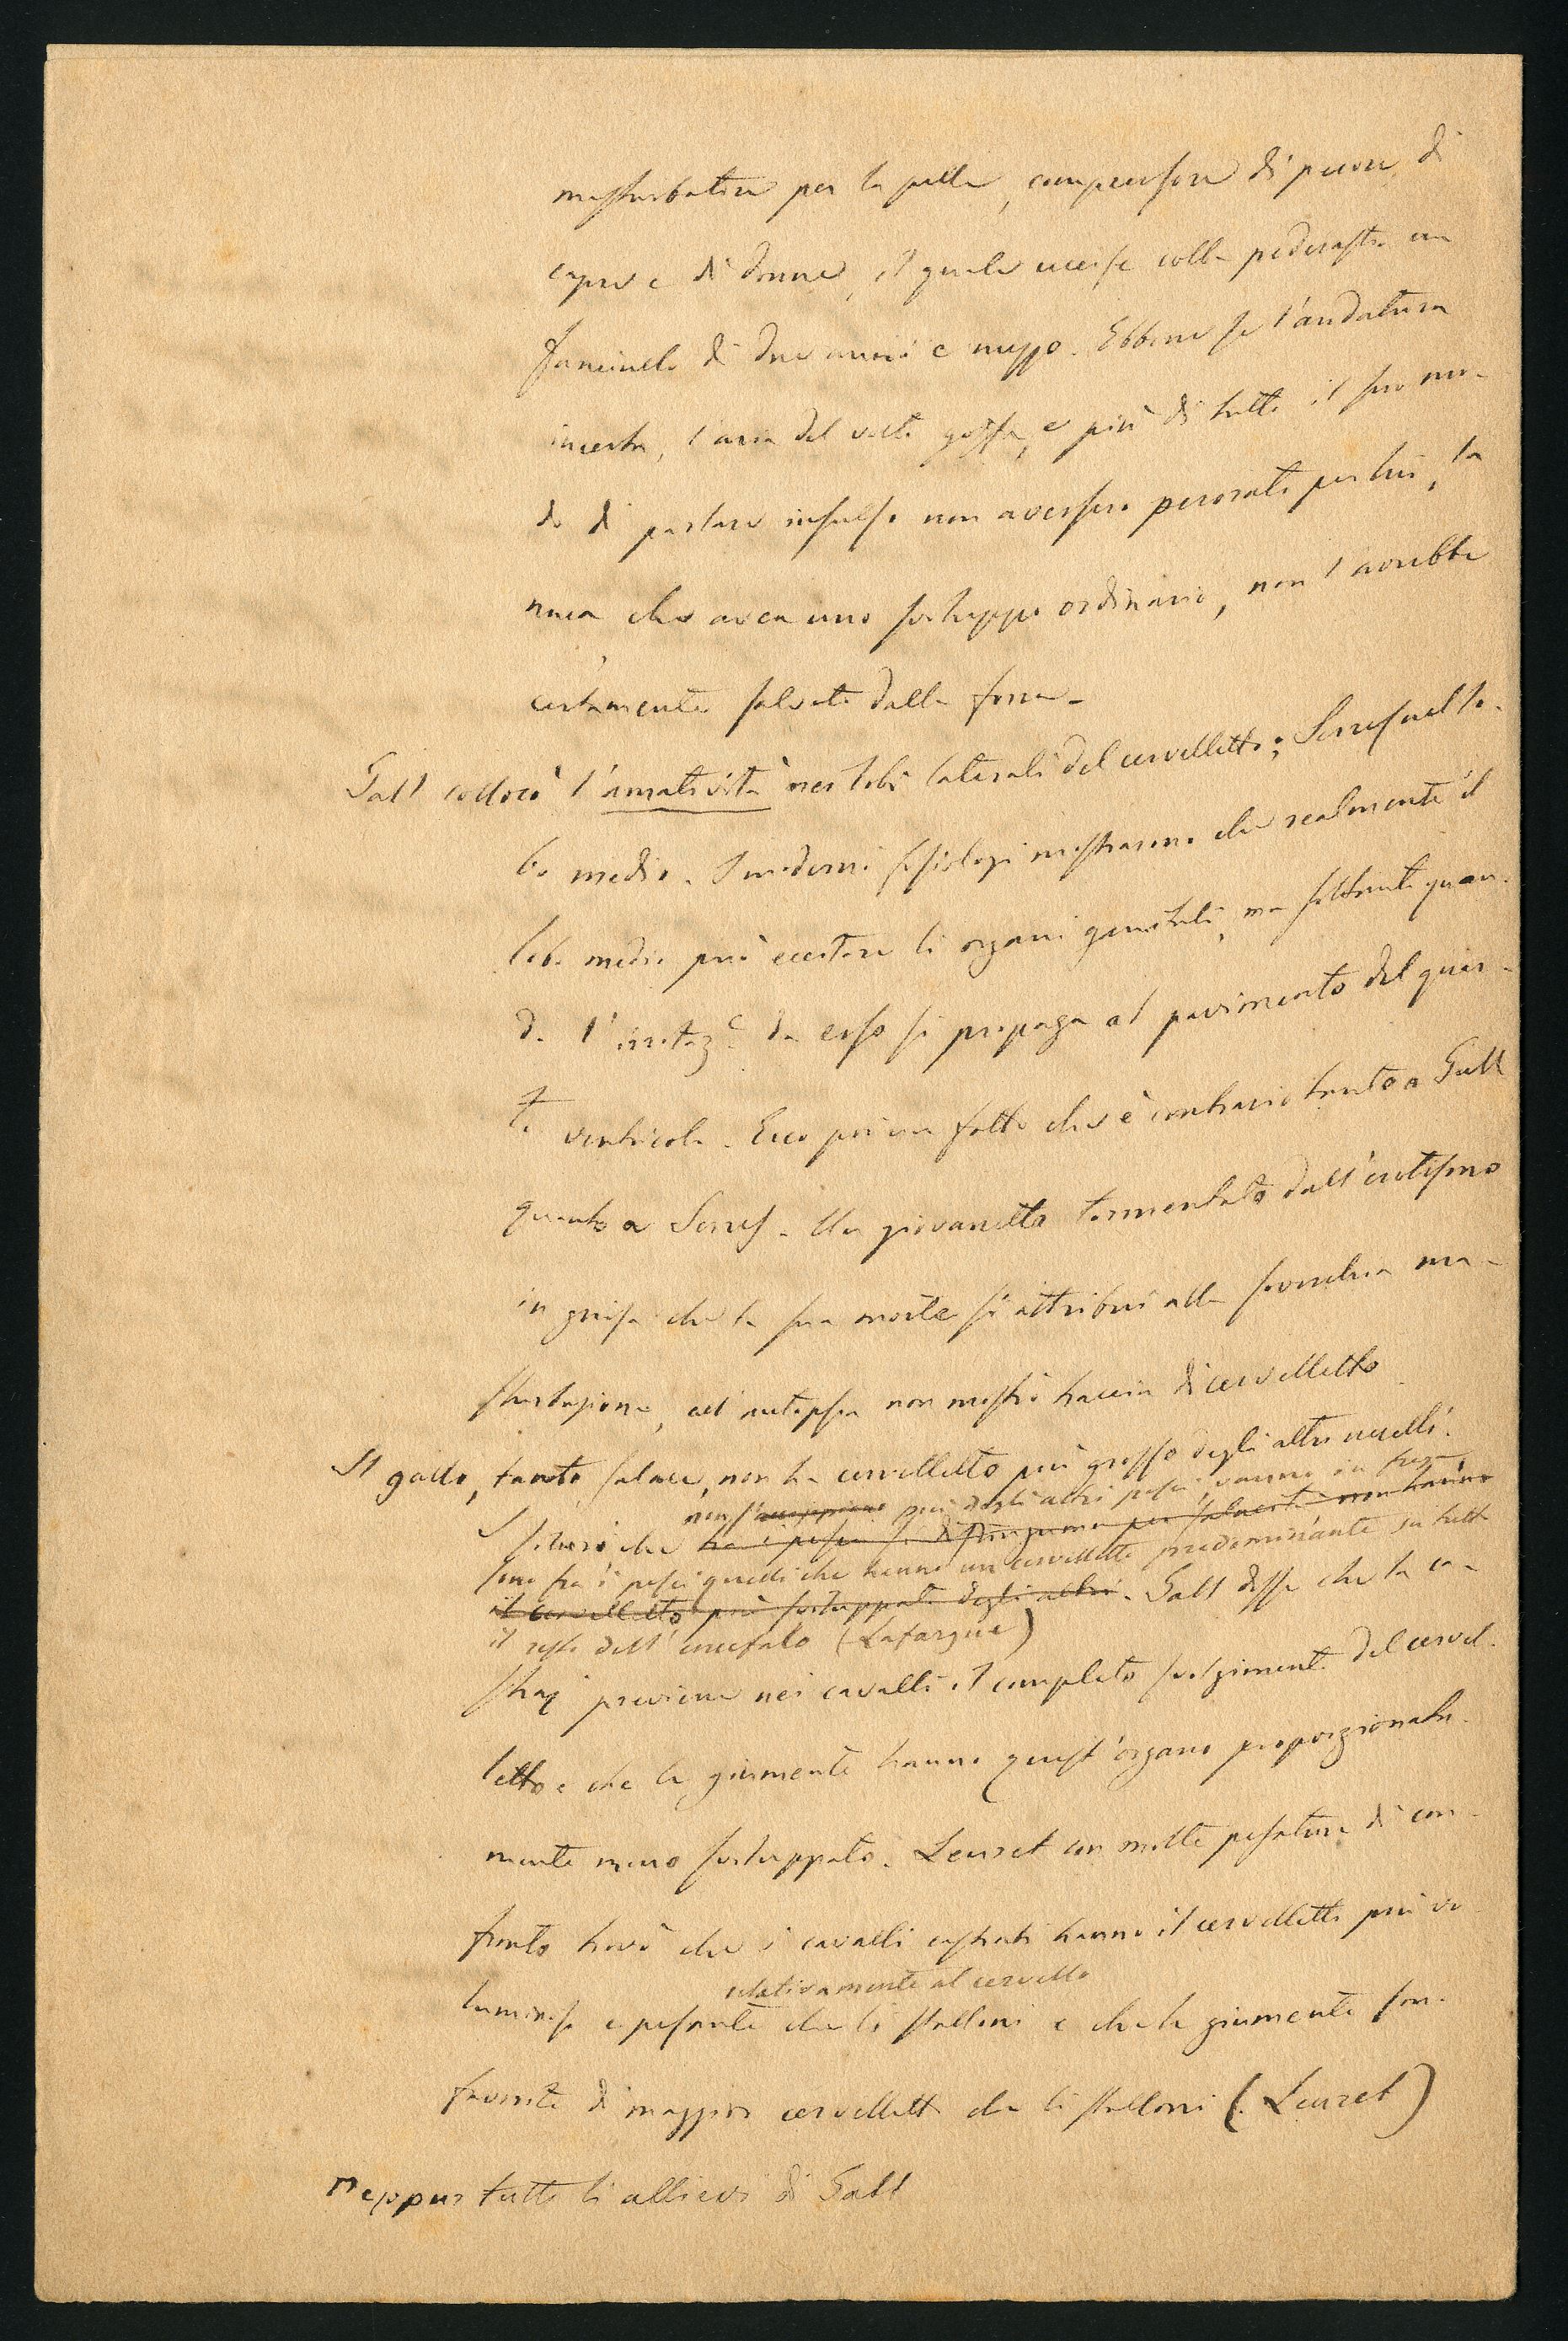 masturbatore per la pelle, compressore di pecore, di
capre e di donne, il quale uccise colla pederastia un
fanciullo di due anni e mezzo. Ebbene se l'andatura
incerta, l'aria del volto goffa, e più di tutto il suo mo-
do di parlare insulso non avessero perorato per lui, la
nuca che avea uno sviluppo ordinario, non l'avrebbe
certamente salvato dalla forca.
Gall collocò l'amatività nei lobi laterali del cervelletto; Serres nel lo-
bo medio. I moderni fisiologi mostrarono che realmente il
lobo medio può eccitare li organi genitali, ma soltanto quan-
do l'irritaz.e da esso si propaga al pavimento del quar-
to ventricolo. Ecco poi un fatto che è contrario tanto a Gall
quanto a Serres. Un giovanetto tormentato dall'erotismo
in guisa che la sua morte si attribuì alla soverchia ma-
sturbazione, all'autopsia non mostrò traccia di cervelletto.
Il gallo, tanto salace, non ha cervelletto più grosso degli altri uccelli.
non s'accoppiano più degli altri pesci, vanno in
I che tra i pesci si distinguono per salacità non hanno
sono fra i pesci quelli che hanno un cervelletto predominante su tutto
il cervelletto più sviluppato degli altri. Gall disse che la ca-
il resto dell'encefalo (Lafargue)
straz previene nei cavalli il completo svolgimento del cervel-
letto e che le giumente hanno quest'organo proporzionata-
mente meno sviluppato. Leuret con molte pesature di con-
fronto trovò che i cavalli castrati hanno il cervelletto più vo-
relativamente al cervello
luminoso e pesante che li stalloni e che le giumente son
fornite di maggior cervelletto che li stalloni (Leuret)
neppur tutti li allievi di Gall